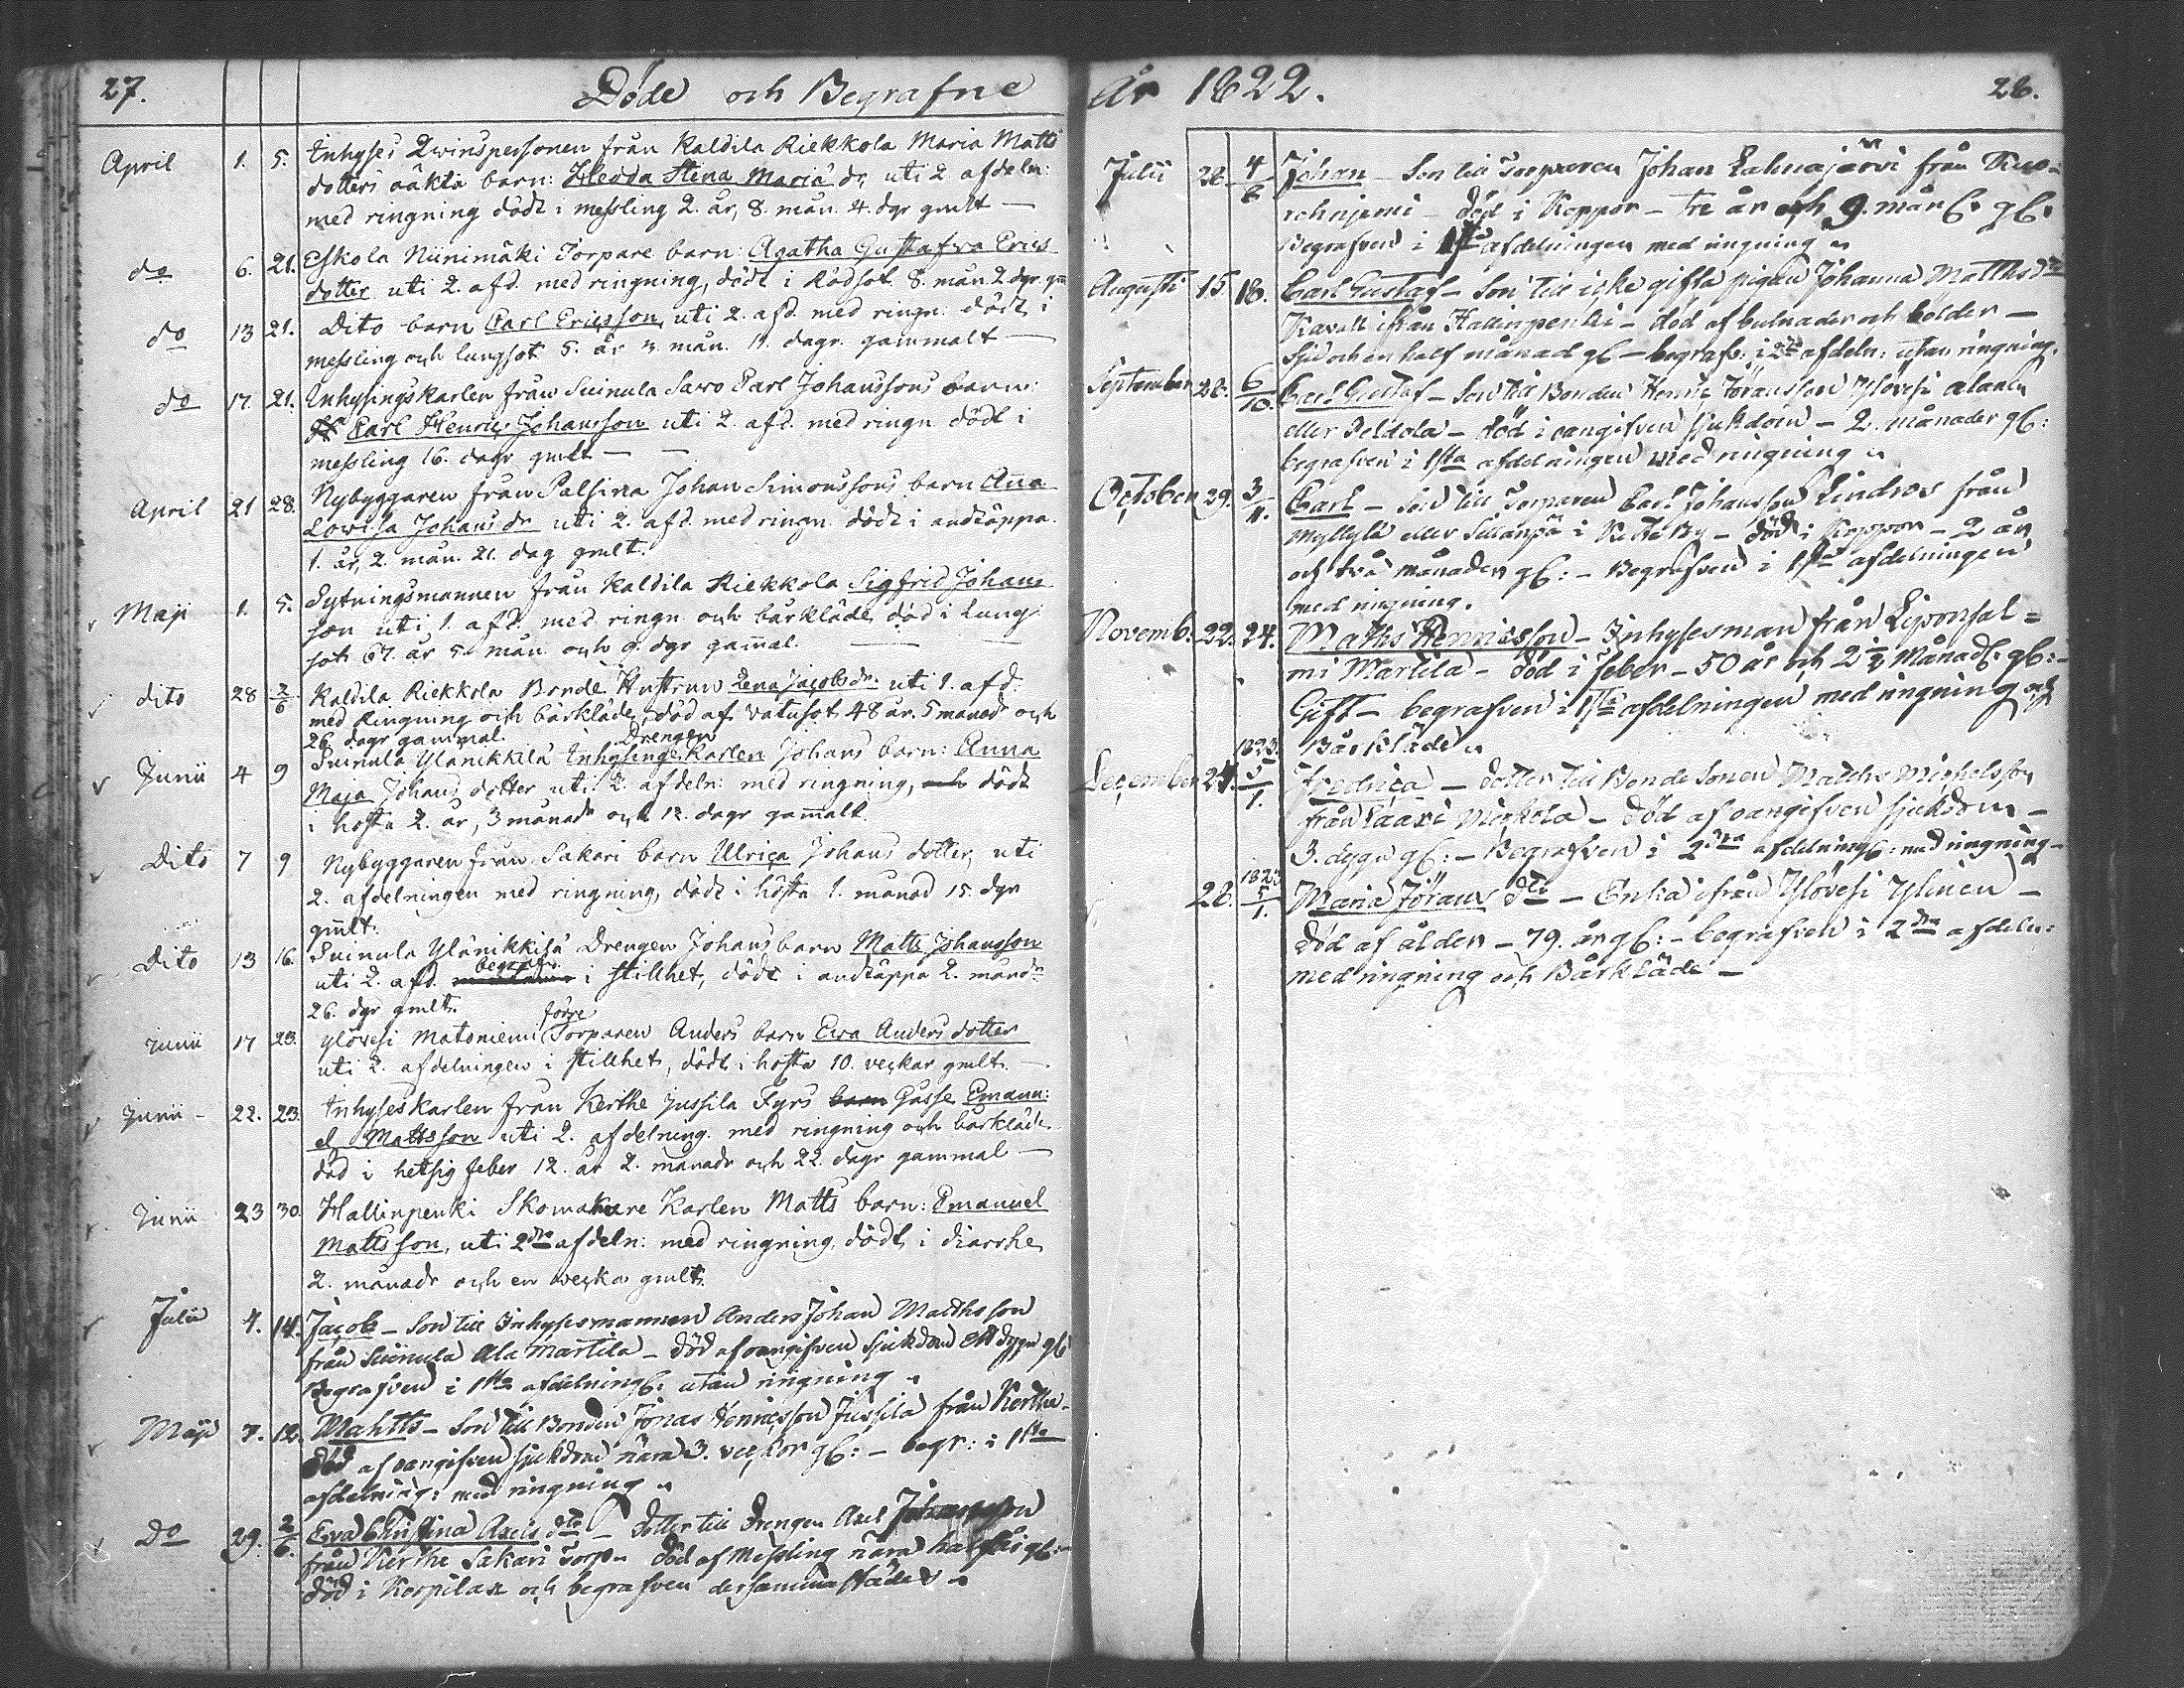 27.
Döde och Begrafne
April 1. 5. Inhyses Qvinspersonen från Kaldila Riekkola Maria Matts
dotters oäkta barn: Hedda Stena Maria dr uti 2 afdeln:
med ringning dödt i messling 2. år, 8. mån. 4. dgr gmlt —
do 6. 21. Eskola Niinimäki Torpare barn: Agatha Gustafva Erics
dotter uti 2. afd. med ringning, dödt i Rödsot 8. mån. 2 dgr.
do 13 21. Dito barn Carl Ericsson, uti 2. afd. med ringn: dödt i
messling och lungsot 5. år 3. mån. 11. dagr. gammalt —
do 17. 21. Inhysingskarlen från Suinula Savo Carl Johanssons barn:
Carl Henric Johansson uti 2. afd. med ringn. dödt i
messling 16. dagr gmlt — —
April 21 28. Nybyggaren från Palsina Johan Simonssons barn Ana
Lovisa Johans dr uti 2. afd. med ringn. dödt i andtäppa.
1. år, 2. mån. 21. dag gmlt.
Maji 1. 5. Sytningsmannen från Kaldila Riekkola Sigfrid Johans
son uti 1. afd. med ringn. och bårkläde, död i lung
sot 67. år 5. mån. och 9. dgr gamal. — —
dito 28 2/6 Kaldila Riekkola Bonde Hustrun Lena Jacobsdr. uti 1. afd.
med Ringning och bårkläde, död af vatusot 48 år. 5 månadr och
26. dagr gammal.
Drengen
Junii 4 9 Suinula Ylänikkilä Inhysinge Karlen Johans barn: Anna
Maja Johans dotter uti 2. afdeln: med ringning, och dödt
i hosta 2. år, 3 månadr och 12. dagr gamalt.
Dito 7 9 Nybyggaren från Sakari barn Ulrica Johans dotter, uti
2. afdelningen med ringning, dödt i hosta 1. månad 15. dgr
gmlt.
Dito 13 16. Suinula Ylänikkilä Drengen Johans barn Matts Johansson
begrafn.
uti 2. afd. i stillhet, dödt i andtäppa 2. månadr
26. dgr gmlt.
förre
Junii 17 23. Ylövesi Matoniemi Torparen Anders barn Eva Anders dotter
uti 2. afdelningen i stillhet, dödt i hosta 10. veckar gmlt. —
Junii — 22. 23. Inhyses karlen från Kerthe Jussila Fyrs barn Gosse Emanu:
el Mattsson uti 2. afdelning. med ringning och bårkläde
död i hetsig feber 12. år 2. månadr och 22. dagr gammal —
Junii 23 30. Hallinpenki Skomakare Karlen Matts barn: Emanuel
Matts son, uti 2dra afdeln: med ringning. dödt i diarrhe
2. månadr och en vecka gmlt.
Julii 4. 14. Jacob — Son till Inhysesmannen Anders Johan Matths son
från Suinula Ala Martila — död af oangifven sjukdom ett dygn gl
Begrafven i 1sta afdelning: utan ringning
Maji 7. 12. Mahtts — Son till Bonden Jonas Henricsson Jussila från Kerthe —
död af oangifven sjukdom nära 3. veckor gl: — begr: i 1sta
afdelning: med ringning
Do 29. 2/6. Eva Christina Axels dtr — dotter till Drengen Axel Johansson
från Kerthe Sakari Torp — död af Messling nära half år gl:
död i Korpilax och begrafven dersamma städes
År 1822.
28.
Julii 28. 4/8 Johan — Son till Torparen Johan Lahnajärvi från Kuo=
rehnjemi — Död i Koppor — tre år och 9. mån: gl:
Begrafven i 1sta afdelningen med ringning
Augusti 15 18. Carl Gustaf — Son till icke gifta pigan Johanna Matthsdtr
Kavall ifrån Hallinpenki — död af bulnader och bölder —
Sju och en half månad gl — begrafv: i 2dra afdeln: utan ringning.
September 28. 6/10. Carl Gustaf — Son till Bonden Henric Göransson Ylövesi Alanen
eller Peldola — död i oangifven sjukdom — 2. månader gl:
begrafven i 1sta afdelningen med ringning
October 29. 3/11. Carl — Son till Torparen Carl Johansson Lindros från
Myllylä eller Sillanpä i By — död i Koppor — 2 år
och två månader gl: — Begrafven i 1sta afdelningen
med ringning.
Novemb. 22. 24. Maths Henricsson — Inhysesman från Liponsal=
mi Martila — död i feber — 50 år och 2 1/2 Månad: gl: —
Gift — begrafven i 1sta afdelningen med ringning och
Bårkläde
December 24. 1823. 5/1. Fredrica — dotter till Bonde Sonen Matths Michelsson
från Saari Mickola — död af oangifven sjukdom —
3. dygn gl: — Begrafven i 2dra afdelning: med ringning —
28. 1823 5/1. Maria Görans dtr — Enka ifrån Ylövesi Ylinen —
död af ålder — 79. år gl: — begrafven i 2dra afdeln:
med ringning och Bårkläde —